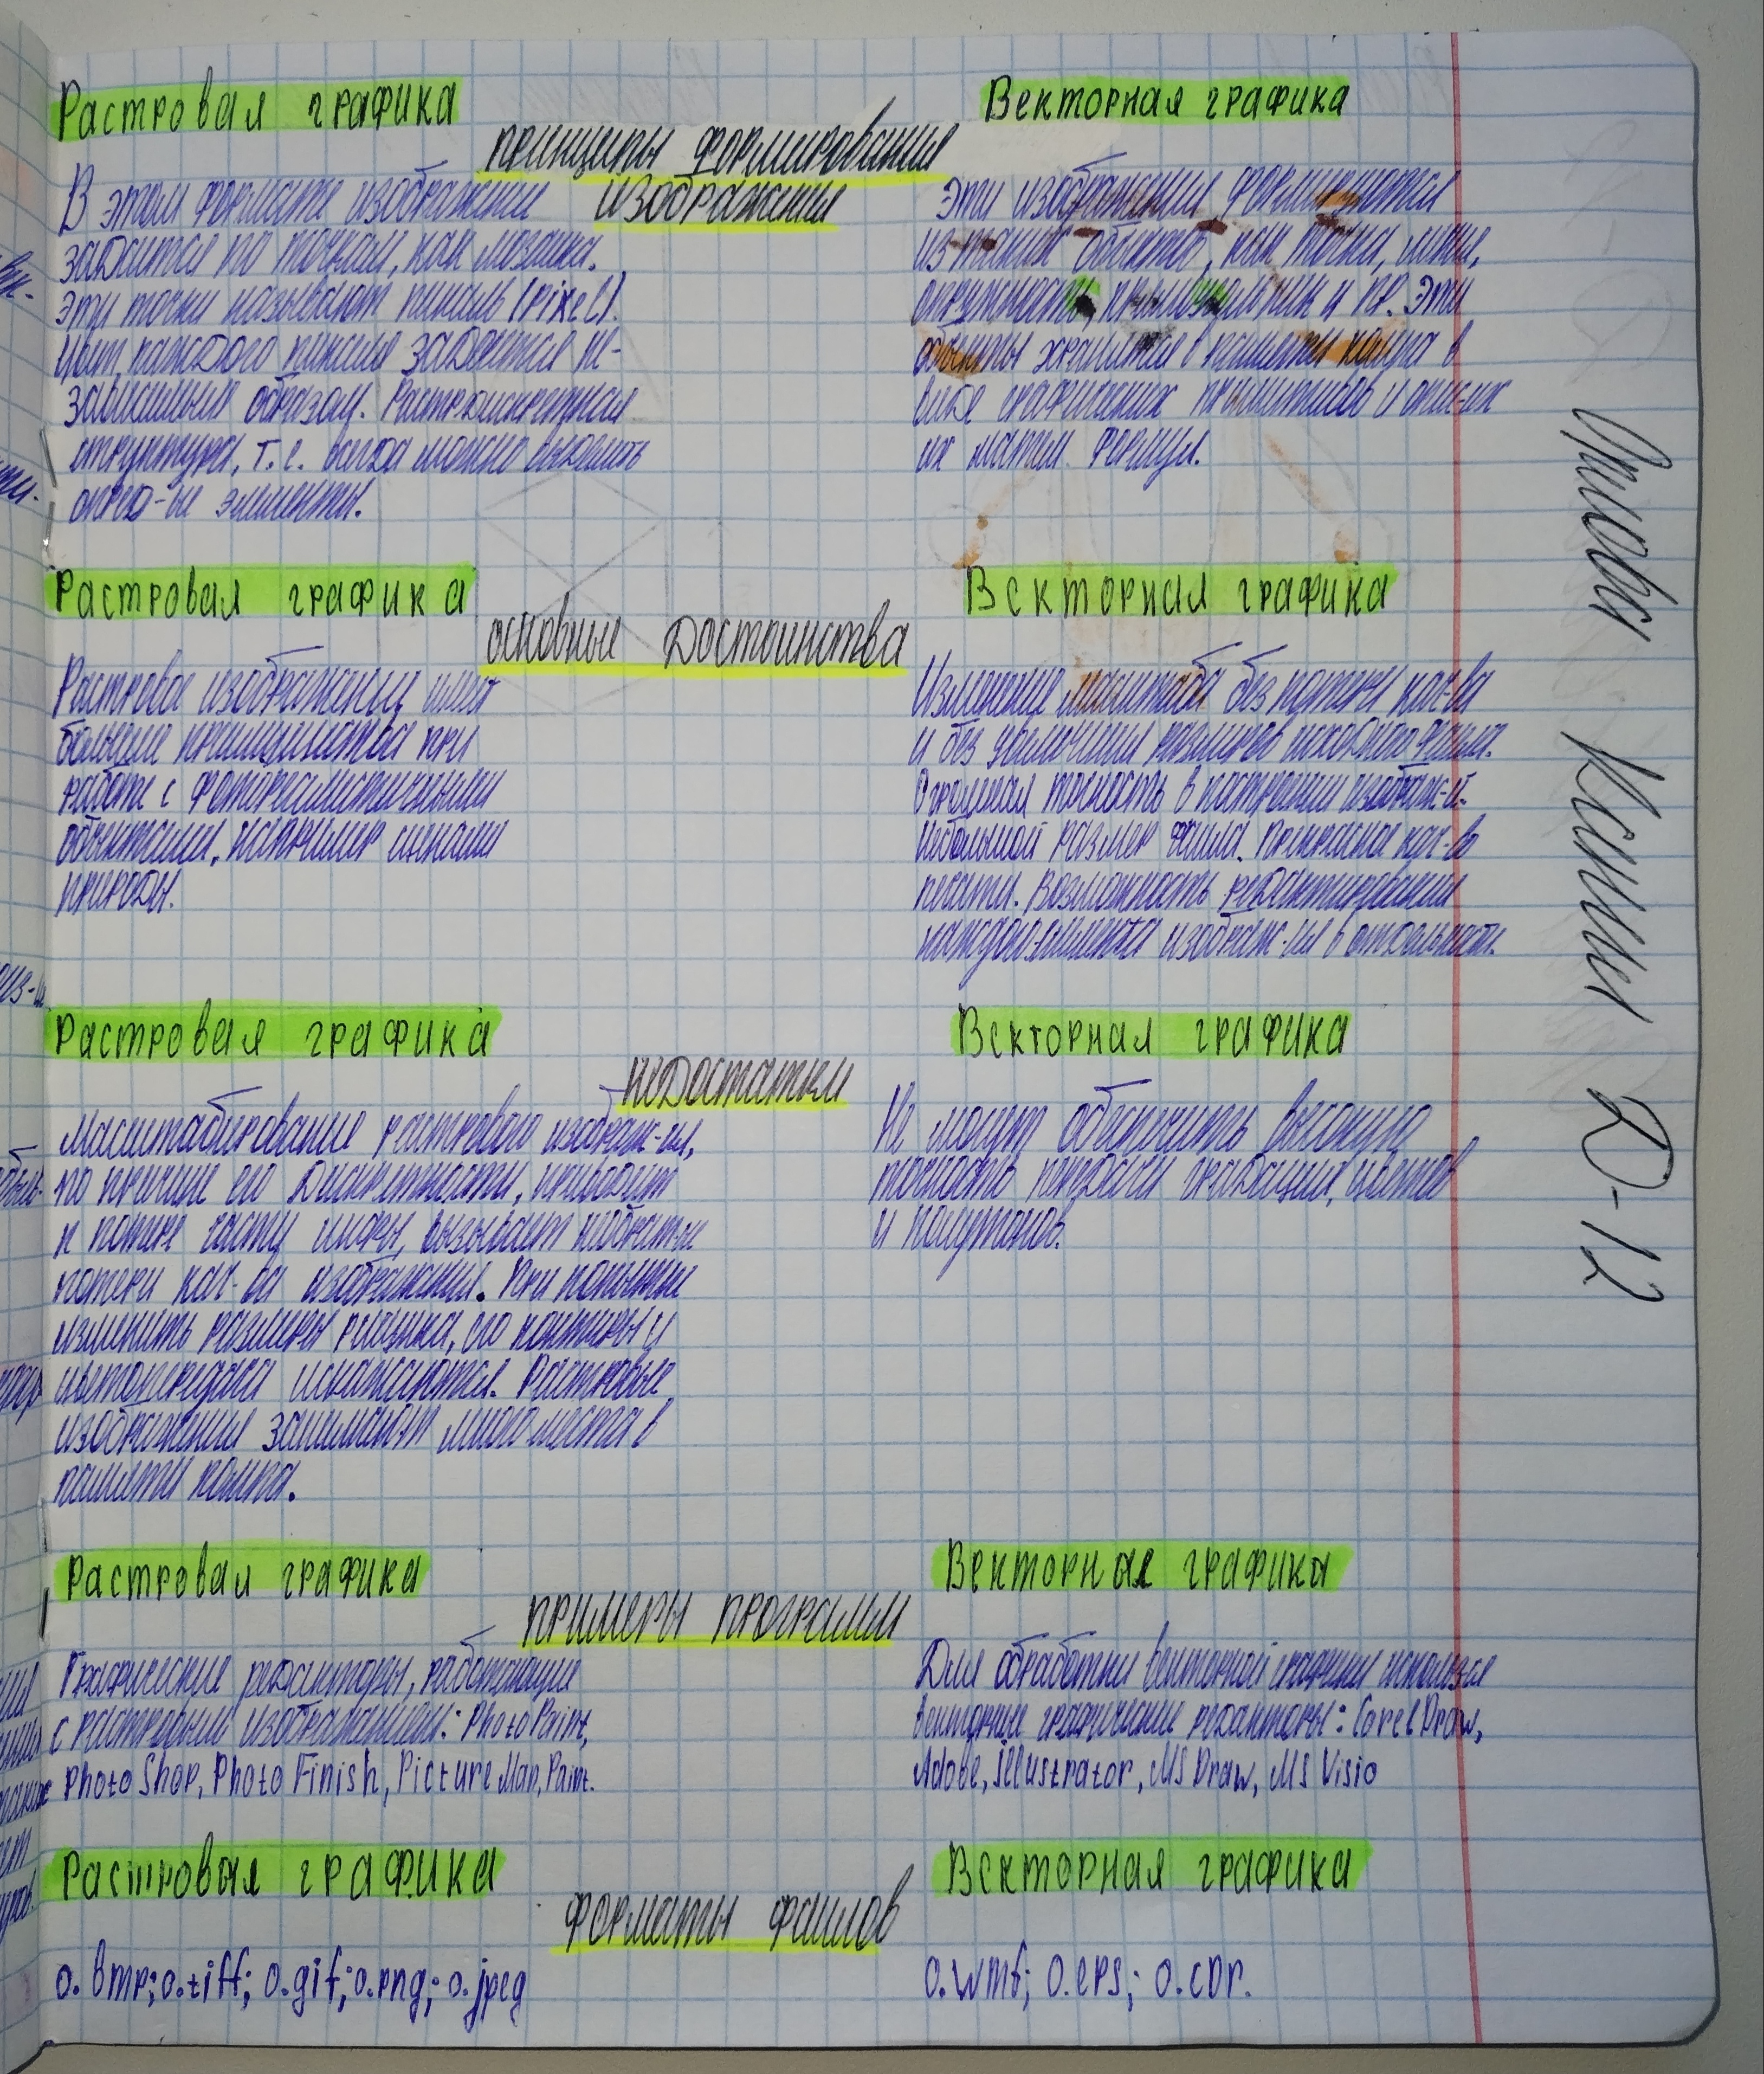 Растровая графика
Векторная графика
принципы формирования
изображения
В этом формате изображение
задаются по точкам, как мозаика.
Эти точки называют пиксель (pixel).
Цвет каждого пикселя задаётся не-
зависимым образом. Растр дискретная
структура, т.е. всегда можно выделить
опред-ые элементы.
Эти изображения формируются
из таких объектов, как точка, линия,
окружность, прямоугольник и пр. Эти
объекты хранятся в памяти компа в
виде графических примитивов и опис-их
их матем. формул.
Растровая графика
Векторная графика
основные достоинства
Растровое изображение имеет
большие преимущества при
работе с фотореалистичными
объектами, например сценами
природы.
Изменение масштаба без потери кач-ва
и без увеличения размеров исходного файла.
Огромная точность в построении изображ-й.
Небольшой размер файла. Прекрасное кач-во
печати. Возможность редактирования
каждого элемента изображ-ия в отдельности.
Растровая графика
Векторная графика
недостатки
Масштабирование растрового изображ-ия,
по причине его дискретности, приводит
к потере части инфы, вызывает
потери кач-ва изображения. При попытке
изменить размеры рисунка, его контуры и
цветопередача искажаются. Растровые
изображения занимают много места в
памяти компа.
Не могут обеспечить высокую
точность передачи градации, цветов
и полутонов.
Растровая графика
Векторная графика
примеры программ
Графические редакторы, работающие
с растровым изображением: Photo Paint,
Photo Shop, Photo Finish, Picture Man, Paint.
Для обработки векторной графики
векторные графические редакторы: Corel Draw,
Adobe, illustrator, MS Draw, MS Visio
Растровая графика
Векторная графика
форматы файлов
о. bmp; о.tiff; о.gif; о.png; о.jpeg
о.wmf; о.eps; о.cdr.
Ксения Д-12